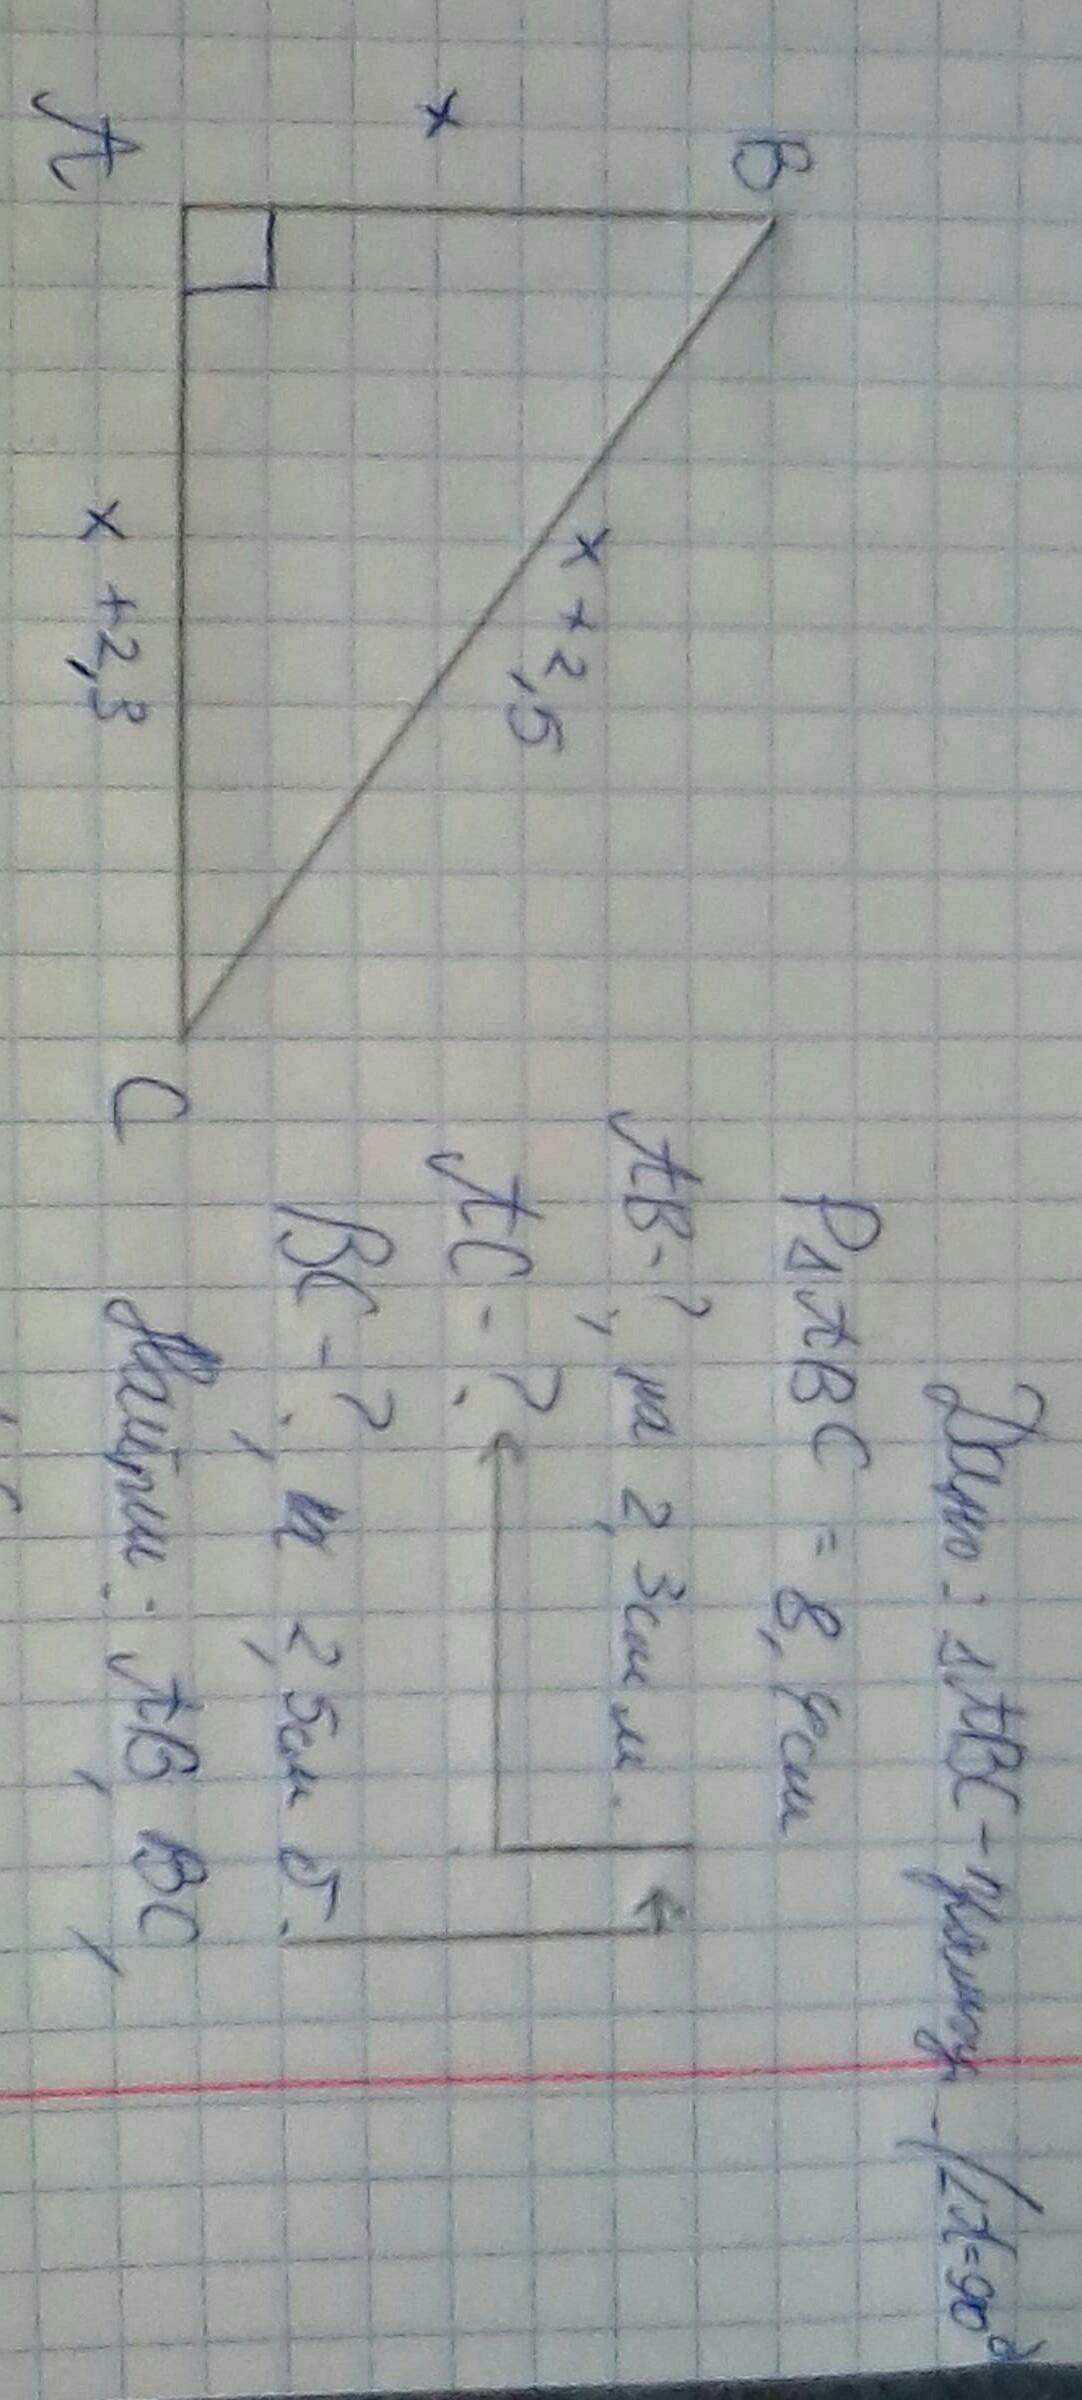 Дано: △ABC - прямоуг. (∠A=90°)
P△ABC = 8,4см
AB-?, на 2,3см м.
AC-?
BC-?, на 2,5см б.
Найти: AB, BC,
B
x
x + 2,5
A
x + 2,3
C